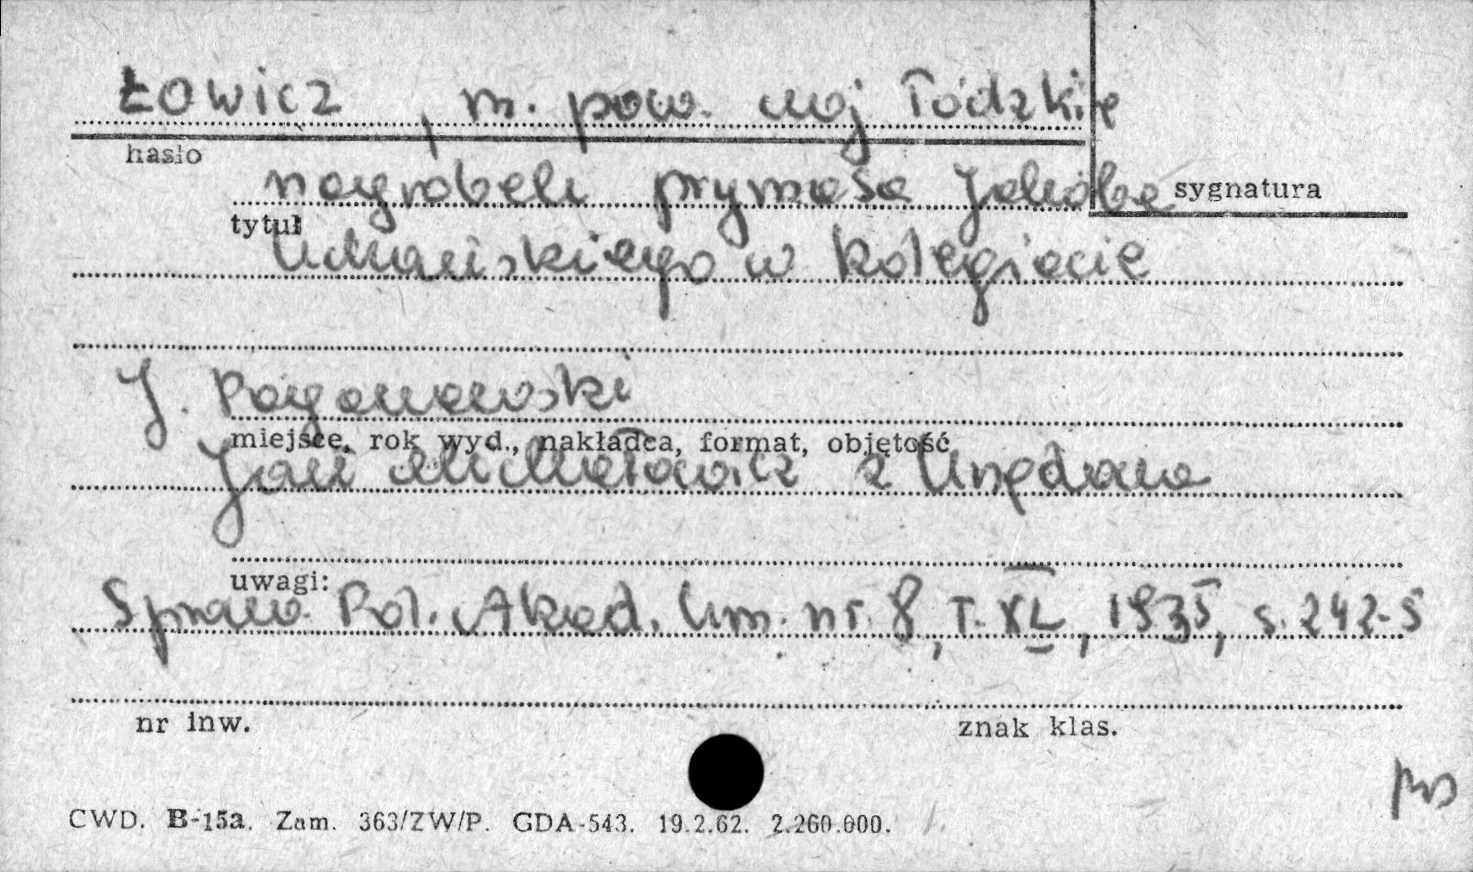 Łowicz, m. pow. woj łódzkie
hasło
nagrobek prymasa Jakóba
sygnatura
tytuł
Uchańskiego w kolegiacie
J. Pagaczewski
miejsce, rok wyd., nakładca, format, objętość
Jan Michałowicz z Urzędowa
uwagi:
Spraw. Pol. Akad. Um. nr. 8, T. XL, 1935, s. 242-5
nr inw.
znak klas.
CWD. B-15a. Zam. 363/ZW/P. GDA-543. 19.2.62. 2.260.000.